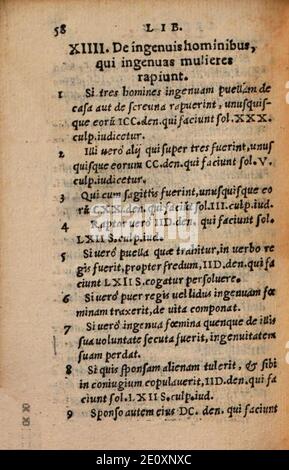 58 LIB.
XIIII. De ingenuis hominibus,
qui ingenuas mulieres
rapiunt.
1 Si tres homines ingenuam puellam de
casa aut de screuna rapuerint, unusquis-
que eorũ ICC.den.qui faciunt sol.XXX.
culp.iudicetur.
2 Illi uerò alij qui super tres fuerint,unus
quisque eorum CC.den.qui faciunt sol.V.
culp.iudicetur.
3 Qui cum sagittis fuerint,unusquisque eo
rũ CXX.den.qui faciũt sol.III.culp.iud.
4 Raptor uerò IID.den. qui faciunt sol.
LXII S.culp.iud.
5 Si uerò puella quæ trahitur,in uerbo re
gis fuerit,propter fredum,IID.den.qui fa
ciunt LXII S.cogatur persoluere.
6 Si uerò puer regis uel lidus ingenuam fœ
minam traxerit,de uita componat.
7 Si uerò ingenua fœmina quemque de illis
sua uoluntate secuta fuerit, ingenuitatem
suam perdat.
8 Si quis sponsam alienam tulerit, & sibi
in coniugium copulauerit,IID.den.qui fa
ciunt sol.LXII S.culp.iud.
9 Sponso autem eius DC. den. qui faciunt
alamy
Image ID: 2E0XNXC
www.alamy.com